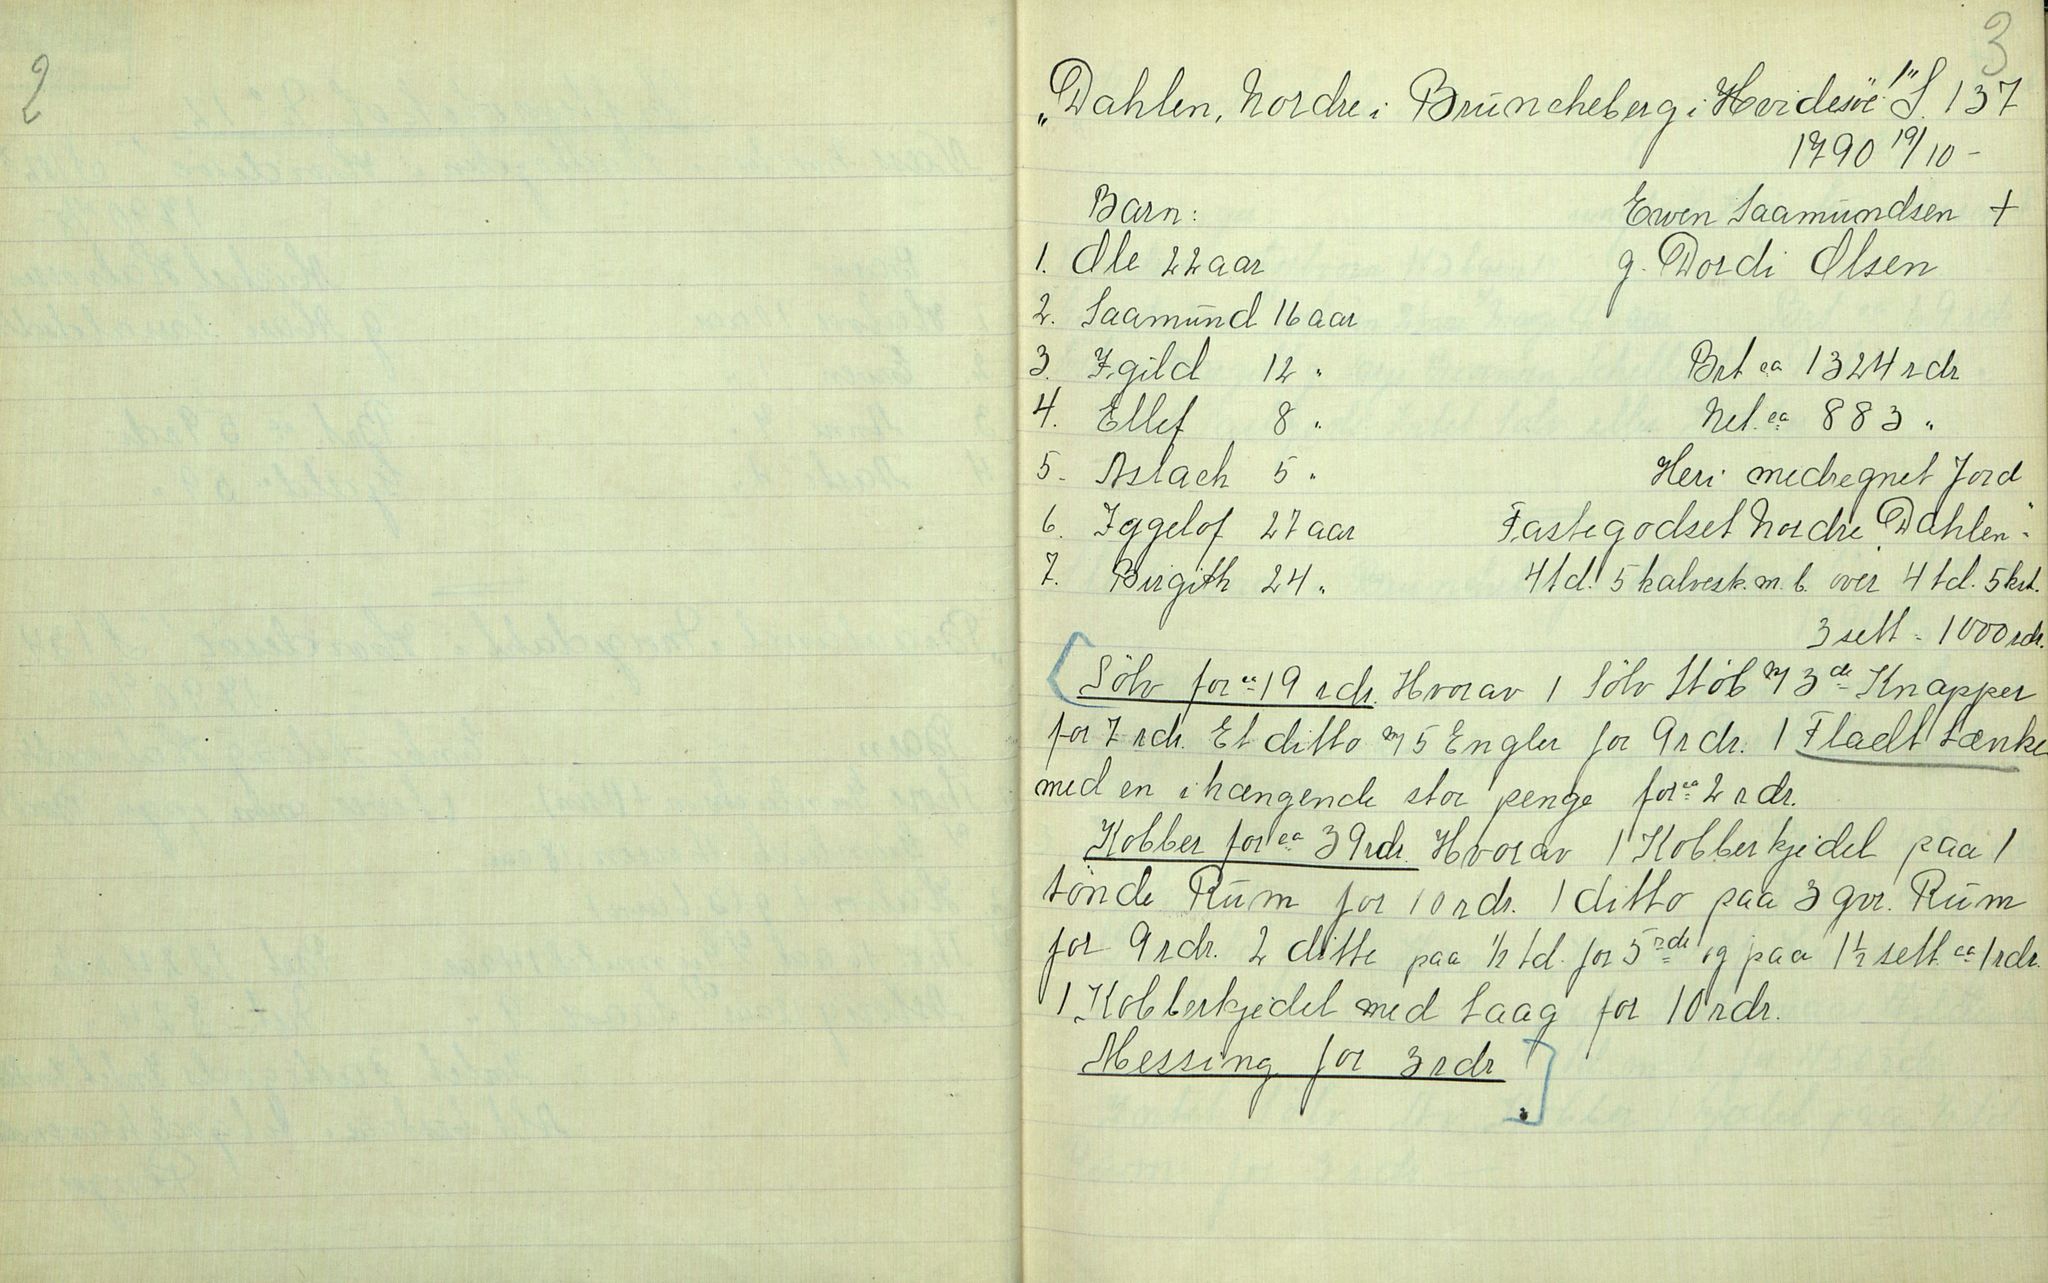 2
3
„Dahlen, Nordre i Brüncheberg i Hvidesöe!" S. 137
1790 19/10 -
Barn:
Even Saamündsen +
1. Ole 22 aar
g. Dordi Olsen
2. Saamünd 16 aar
3. Igild 12 "
Brt ca 1324 rdr
4. Ellef 8 "
Net. ca 883 "
5. Aslach 5 "
Heri medregnet Jord
6. Iggelof 27 aar
Fastegodset Nordre „Dahlen"
7. Birgith 24 "
4 td. 5 kalvesk. m. b. over 4 td. 5 ksk.
3 sett - 1000 rdr.
Sölv for ca 19 rdr. Hvorav 1 Sölv Stöb m/ 3de Knapper
for 7 rdr. Et ditto m/ 5 Engler for 9 rdr. 1 Fladt Lænke
med en ihængende stor penge for ca 2 rdr.
Kobber for ca 39 rdr. Hvorav 1 Kobberkjedel paa 1
tönde Rüm for 10 rdr. 1 ditto paa 3 qvr. Rüm
for 9 rdr. 2 ditte paa ½ td. for 5 rdr og paa 1½ sett. ca 1 rdr.
1 Kobberkjedel med Laag for 10 rdr.
Messing for 3 rdr